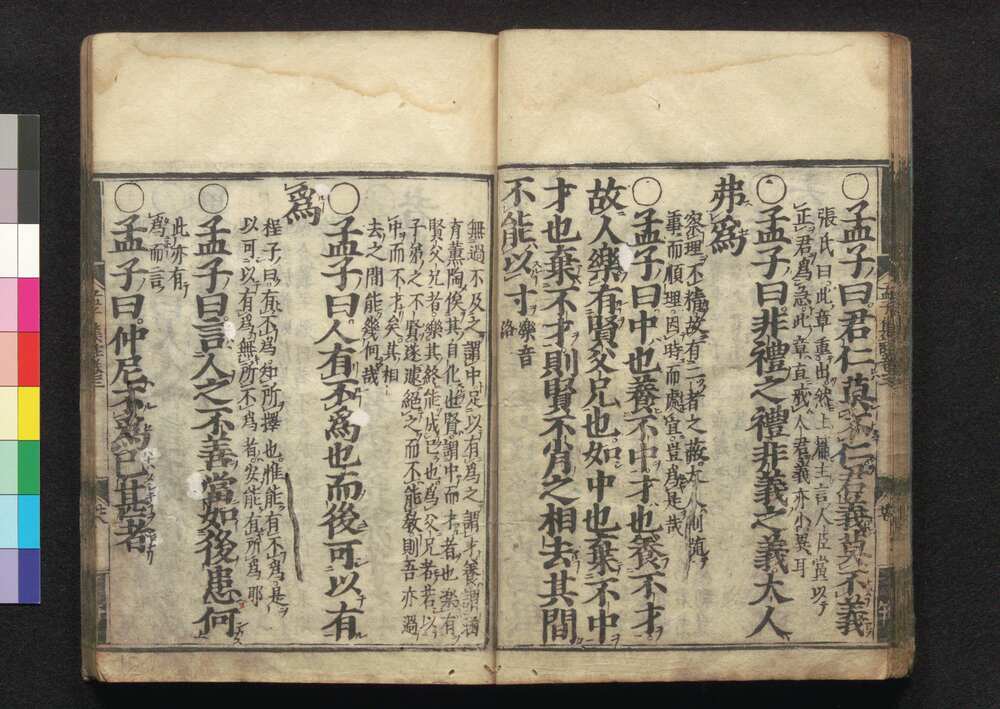 ○孟子曰君仁莫不仁君義莫不義
張氏曰此章重出然上篇主言人臣當以
正君爲急此章直戒人君義亦小異耳
○孟子曰非禮之禮非義之義大人
弗爲
察理不精故有二者之蔽大人則隨
事而順理因時而處宜豈爲是哉
○孟子曰中也養不中才也養不才
故人樂有賢父兄也如中也棄不中
才也棄不才則賢不肖之相去其間
不能以寸
樂音
洛
無過不及之謂中足以有爲之謂才養謂涵
育薰陶俟其自化也賢謂中而才者也樂有
賢父兄者樂其終能成己也爲父兄者若以
子弟之不賢遂遽絕之而不能教則吾亦過
中而不才矣其相
去之間能幾何哉
○孟子曰人有不爲也而後可以有
爲
程子曰有不爲知所擇也惟能有不爲是
以可以有爲無所不爲者安能有所爲耶
○孟子曰言人之不善當如後患何
此亦有
爲而言
○孟子曰仲尼不爲已甚者